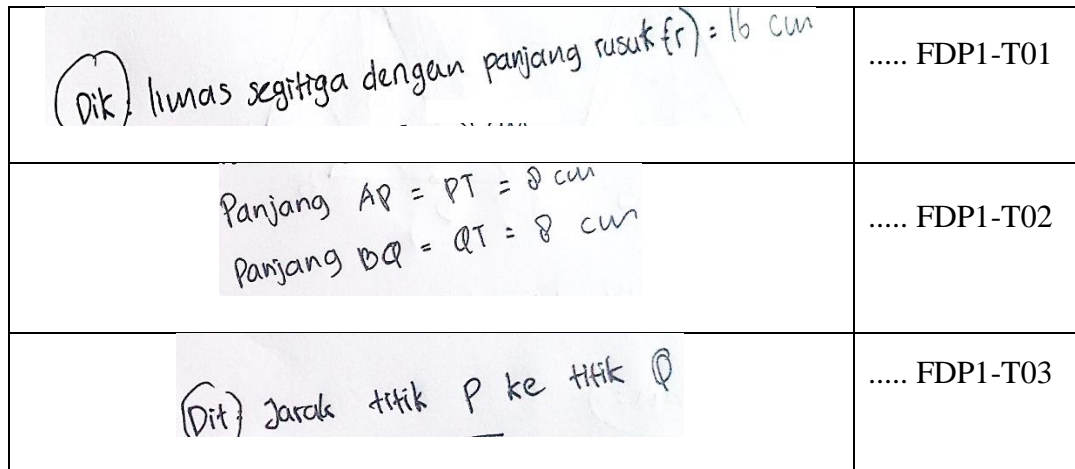 Dik: limas segitiga dengan panjang rusuk (r) = 16 cm
..... FDP1-T01
Panjang AP = PT = 8 cm
Panjang BQ = QT = 8 cm
..... FDP1-T02
Dit: Jarak titik P ke titik Q
..... FDP1-T03